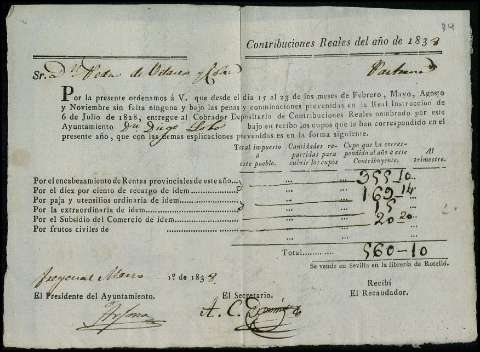 Contribuciones Reales del año de 1838
Sr. D.
Por la presente ordenamos á V. que desde el dia 15 al 23 de los meses de Febrero, Mayo, Agosto
y Noviembre sin falta ninguna y bajo las penas y conminaciones prevenidas en la Real Instruccion de
6 de Julio de 1828, entregue al Cobrador Depositario de Contribuciones Reales nombrado por este
Ayuntamiento Dn Diego bajo en recibo los cupos que le han correspondido en el
presente año, que con las formas esplicaciones prevenidas es en la forma siguiente.
Total impuesto á este pueblo. Cantidades repartidas para cubrir los cupos Cupo que ha correspondido al año á este Contribuyente. Al trimestre.
Por el encabezamiento de Rentas provinciales de este año 355 10
Por el diez por ciento de recargo de idem
Por paja y utensilios ordinaria de idem 169 14
Por la extraordinaria de idem 15
Por el Subsidio del Comercio de idem 20 20
Por frutos civiles de
Total 560-10
Se vende en Sevilla en la librería de
1º de 1838
El Presidente del Ayuntamiento. El Secretario. Recibí
El Recaudador.
A. C.